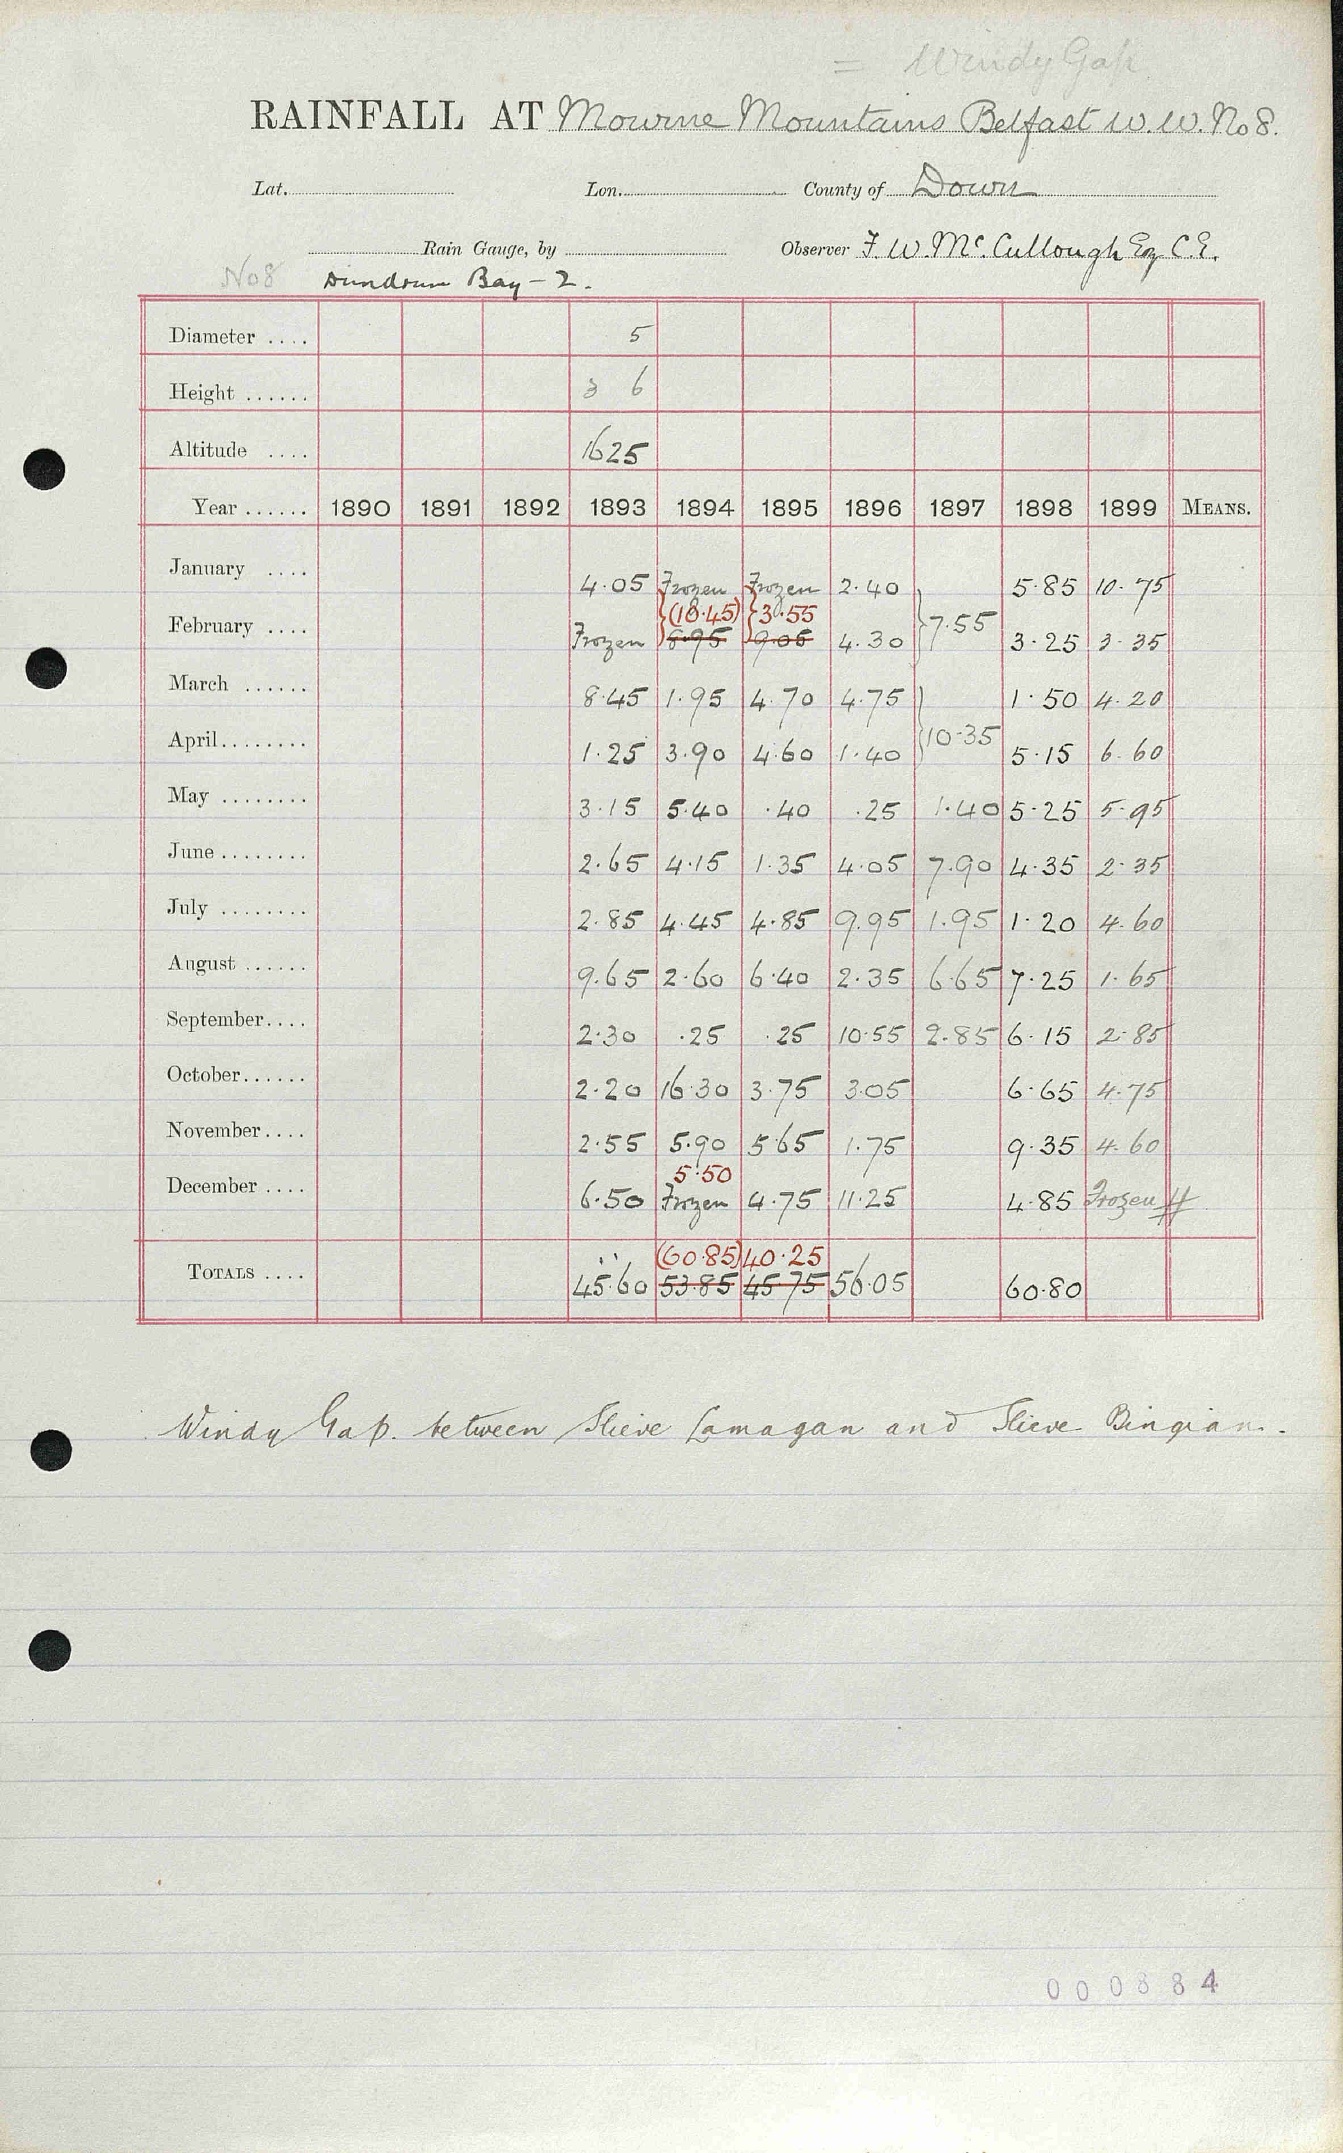 = Windy Gap
RAINFALL AT Mourne Mountains Belfast W.W. No 8.
Lat. Lon. County of Down
Rain Gauge, by Observer F. W. Mc. Cullough Esq C.E.
No 8 Dundrum Bay - 2.
Diameter .... 5
Height ...... 3 6
Altitude .... 1625
Year ...... 1890 1891 1892 1893 1894 1895 1896 1897 1898 1899 MEANS.
January .... 4.05 Frozen Frozen 2.40 5.85 10.75
(18.45) 3.55 7.55
February .... Frozen 8.95 9.05 4.30 3.25 3.35
March ...... 8.45 1.95 4.70 4.75 1.50 4.20
10.35
April........ 1.25 3.90 4.60 1.40 5.15 6.60
May ........ 3.15 5.40 .40 .25 1.40 5.25 5.95
June ........ 2.65 4.15 1.35 4.05 7.90 4.35 2.35
July ........ 2.85 4.45 4.85 9.95 1.95 1.20 4.60
August ...... 9.65 2.60 6.40 2.35 6.65 7.25 1.65
September.... 2.30 .25 .25 10.55 2.85 6.15 2.85
October...... 2.20 16.30 3.75 3.05 6.65 4.75
November.... 2.55 5.90 5.65 1.75 9.35 4.60
5.50
December .... 6.50 Frozen 4.75 11.25 4.85 Frozen
(60.85) 40.25
TOTALS .... 45.60 53.85 45.75 56.05 60.80
Windy Gap. between Slieve Lamagan and Slieve Bingian.
000884